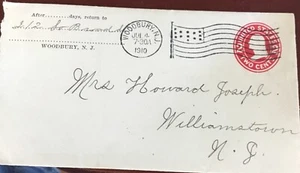 After........days, return to
212 So
WOODBURY, N. J.
WOODBURY, N.J.
7-30A
1910
UNITED STATES
TWO CENTS
Mrs Howard Joseph.
Williamstown
N. J.